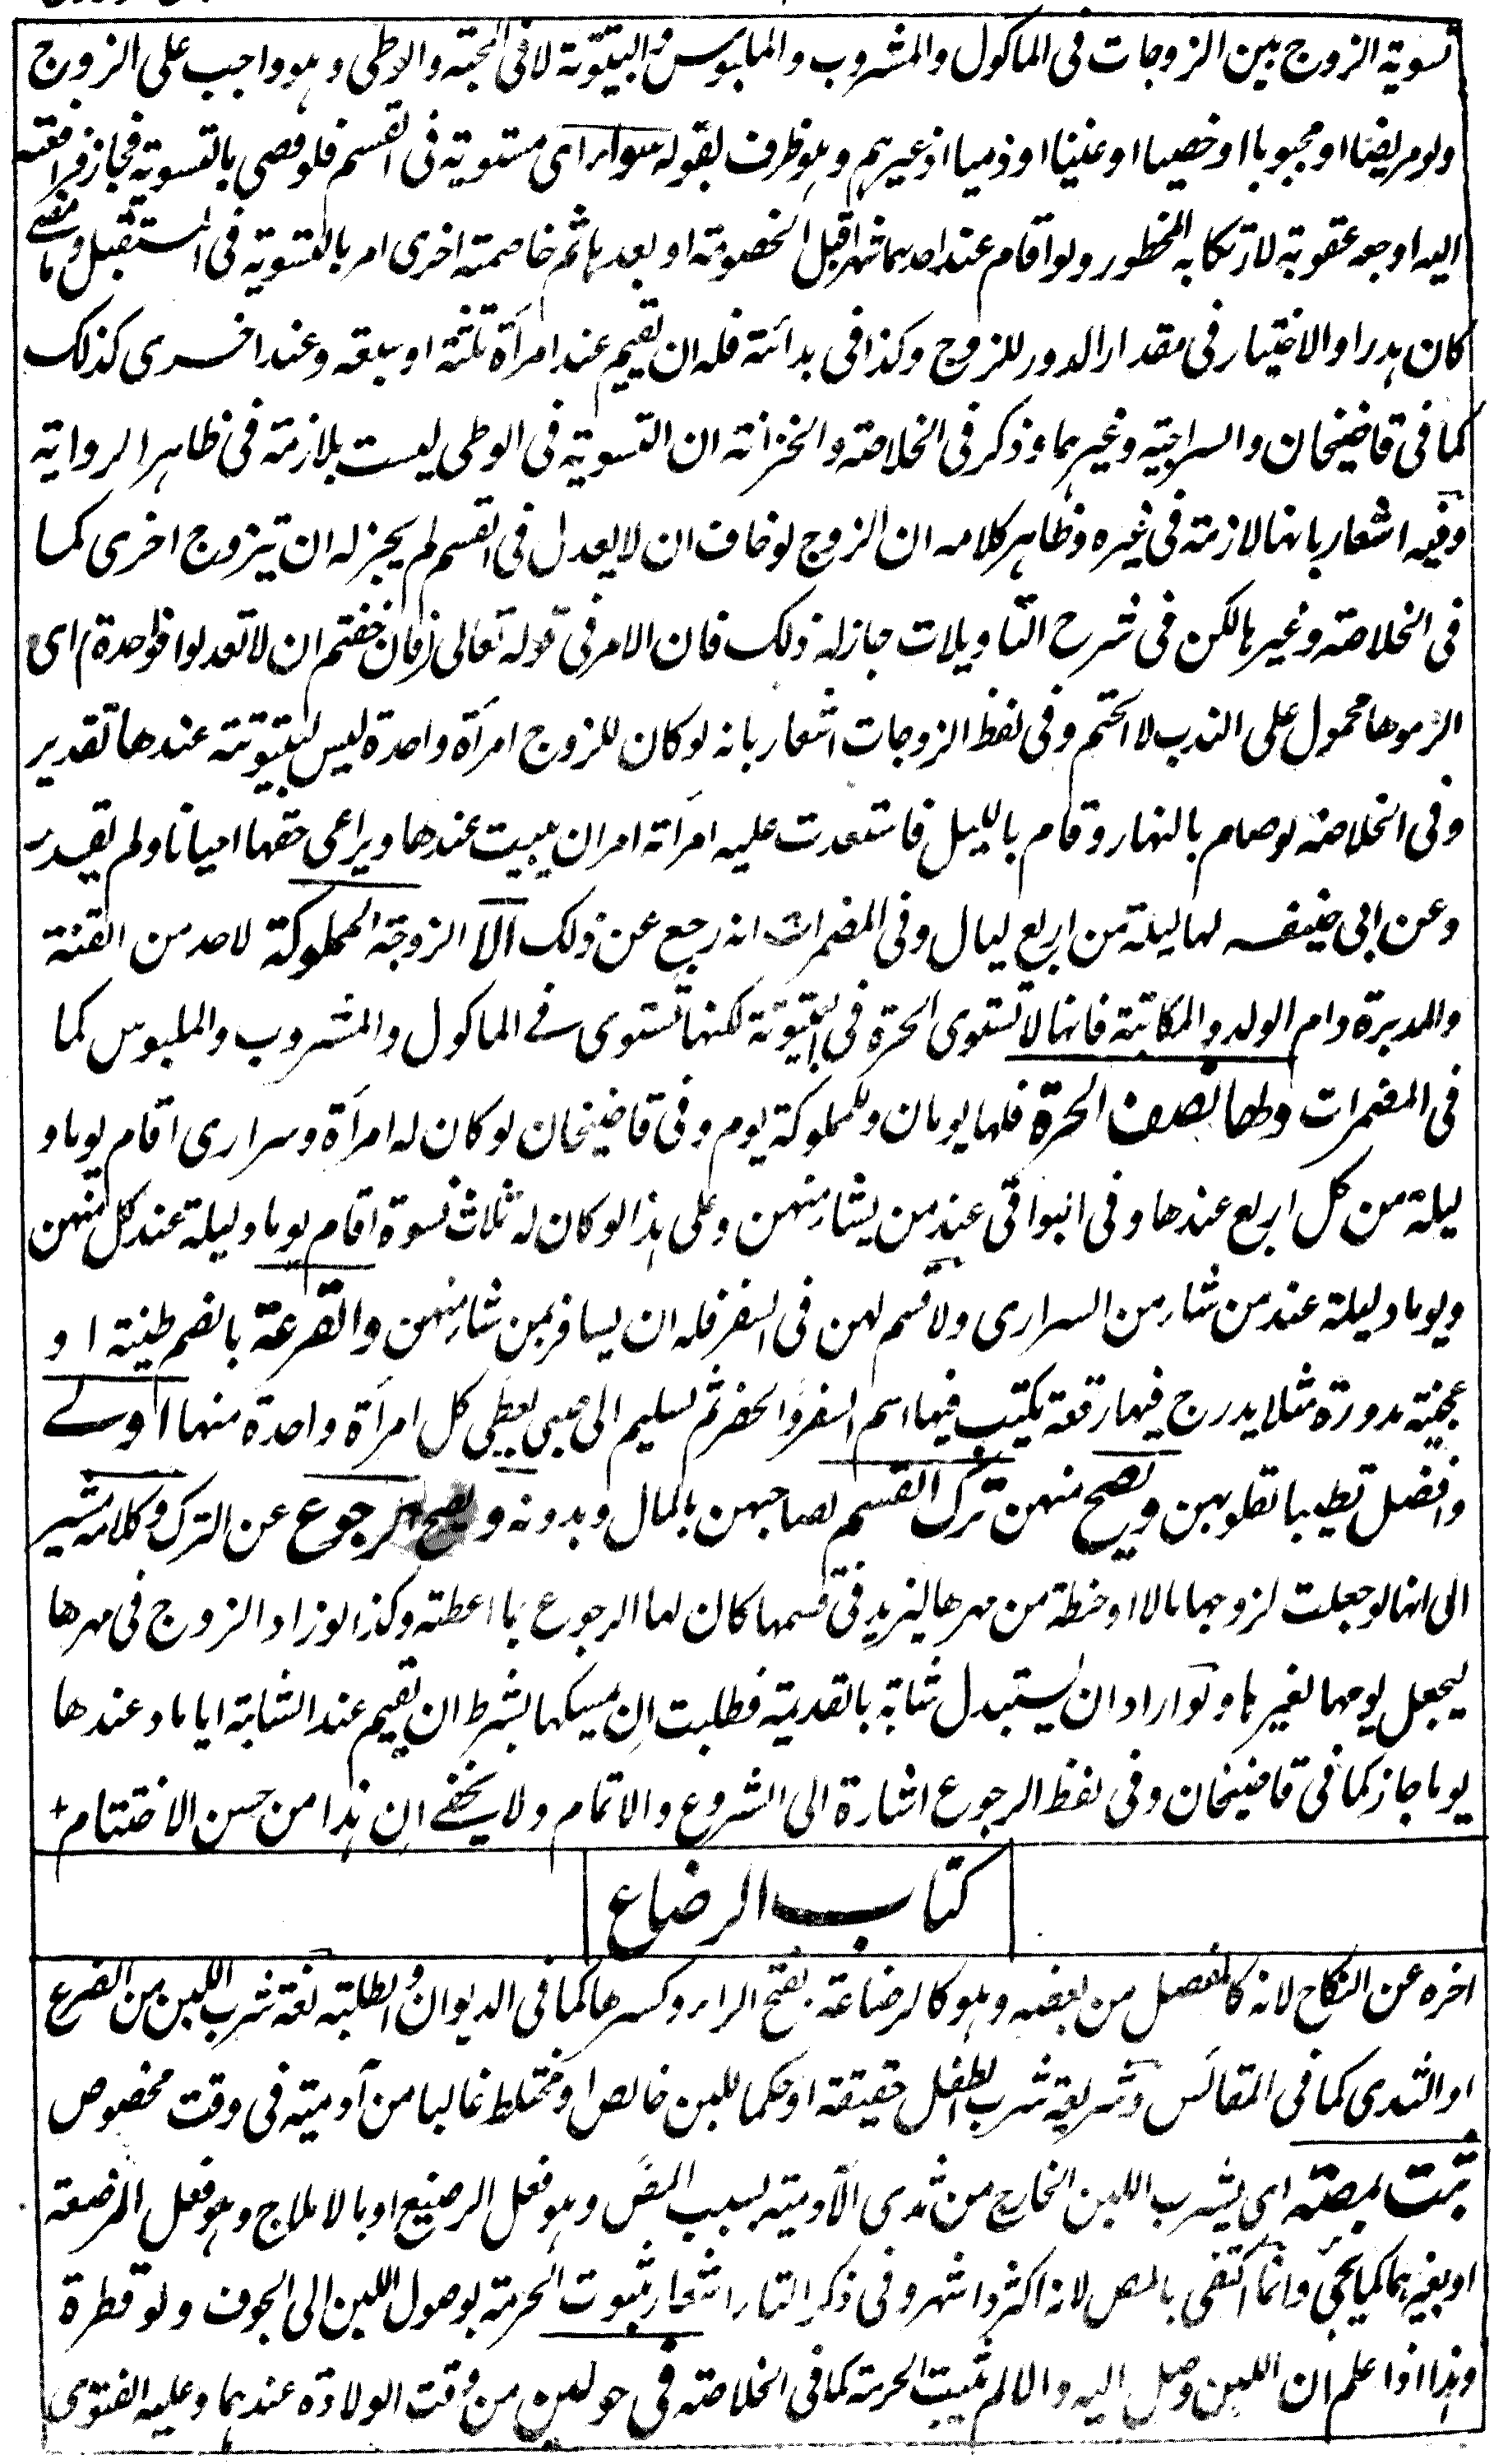 تسوية الزوج بين الزوجات فى الماكول والمشروب والملبوس والبيتوتة لا فى المحبة والوطى وهو واجب على الزوج
ولو مريضا او مجبوبا او خصيا او عنينا او ذميا او غيرهم وهو ظرف لقوله سواء اى مستوية فى القسم فلو قضى بالتسوية فجار فرافعته
اليه اوجعه عقوبة لارتكابه المحظور ولو اقام عند احديهما شهرا قبل الخصومة او بعدها ثم خاصمته اخرى امر بالتسوية فى المستقبل وما مضى
كان هدرا والاختيار فى مقدار الدور للزوج وكذا فى بدائته فله ان يقيم عند امرأة ثلثة او سبعة وعند اخرى كذلك
كما فى قاضيخان والسراجية وغيرهما وذكر فى الخلاصة والخزانة ان التسوية فى الوطى ليست بلازمة فى ظاهر الرواية
وفيه اشعار بانها لازمة فى غيره وظاهر كلامه ان الزوج لو خاف ان لا يعدل فى القسم لم يجز له ان يتزوج اخرى كما
فى الخلاصة وغيرها لكن فى شرح التأويلات جاز له ذلك فان الامر فى قوله تعالى (فان خفتم ان لا تعدلوا فواحدة) اى
الزموها محمول على الندب لا الحتم وفى لفظ الزوجات اشعار بانه لو كان للزوج امرأة واحدة ليس لبيتوتته عندها تقدير
وفى الخلاصة لو صام بالنهار وقام بالليل فاستعدت عليه امرأته امر ان يبيت عندها ويراعى حقها احيانا ولم يقدر
وعن ابى حنيفه لها ليلة من اربع ليال وفى المضمرات انه رجع عن ذلك الا الزوجة المملوكة لاحد من القنة
والمدبرة وام الولد والمكاتبة فانها لا تستوى الحرة فى البيتوتة لكنها تستوى فى الماكول والمشروب والملبوس كما
فى المضمرات ولها نصف الحرة فلها يومان وللمملوكة يوم وفى قاضيخان لو كان له امرأة وسرارى اقام يوما و
ليلة من كل اربع عندها وفى البواقى عند من يشاء منهن وعلى هذا لو كان له ثلاث نسوة اقام يوما وليلة عند كل منهن
ويوما وليلة عند من شاء من السرارى ولا قسم لهن فى السفر فله ان يسافر بمن شاء منهن والقرعة بالضم طينة او
عجينة مدورة مثلا يدرج فيها رقعة يكتب فيها اسم السفر والحضر ثم تسليم الى صبى يعطى كل امرأة واحدة منها اولى
وافضل تطييبا لقلوبهن ويصح منهن ترك القسم لصاحبهن بالمال وبدونه ويصح الرجوع عن الترك وكلامه مشير
الى انها لو جعلت لزوجها مالا او حطة من مهرها ليزيد فى قسمها كان لها الرجوع بما اعطته وكذا لو زاد الزوج فى مهرها
ليجعل يومها لغيرها ولو اراد ان يستبدل شابة بالقديمة فطلبت ان يمسكها بشرط ان يقيم عند الشابة اياما وعندها
يوما جاز كما فى قاضيخان وفى لفظ الرجوع اشارة الى الشروع والاتمام ولا يخفى ان هذا من حسن الاختتام +
كتاب الرضاع
اخره عن النكاح لانه كالمفصل من بعضه وهو كالرضاعة بفتح الراء وكسرها كما فى الديوان والطلبة لغة شرب اللبن من الضرع
او الثدى كما فى المقائس وشريعة شرب الطفل حقيقة او حكما للبن خالص او مختلط غالبا من آدمية فى وقت مخصوص
ثبت بمصة اى يشرب اللبن الخارج من ثدى الآدمية بسبب المص وهو فعل الرضيع او بالاملاج وهو فعل المرضعة
او بغيرهما كما يجئ وانما اكتفى بالمص لانه اكثر واشهر وفى ذكر التاء اشعار بثبوت الحرمة بوصول اللبن الى الجوف ولو قطرة
وهذا اذا علم ان اللبن وصل اليه والا لم يثبت الحرمة كما فى الخلاصة فى حولين من وقت الولادة عندهما وعليه الفتوى